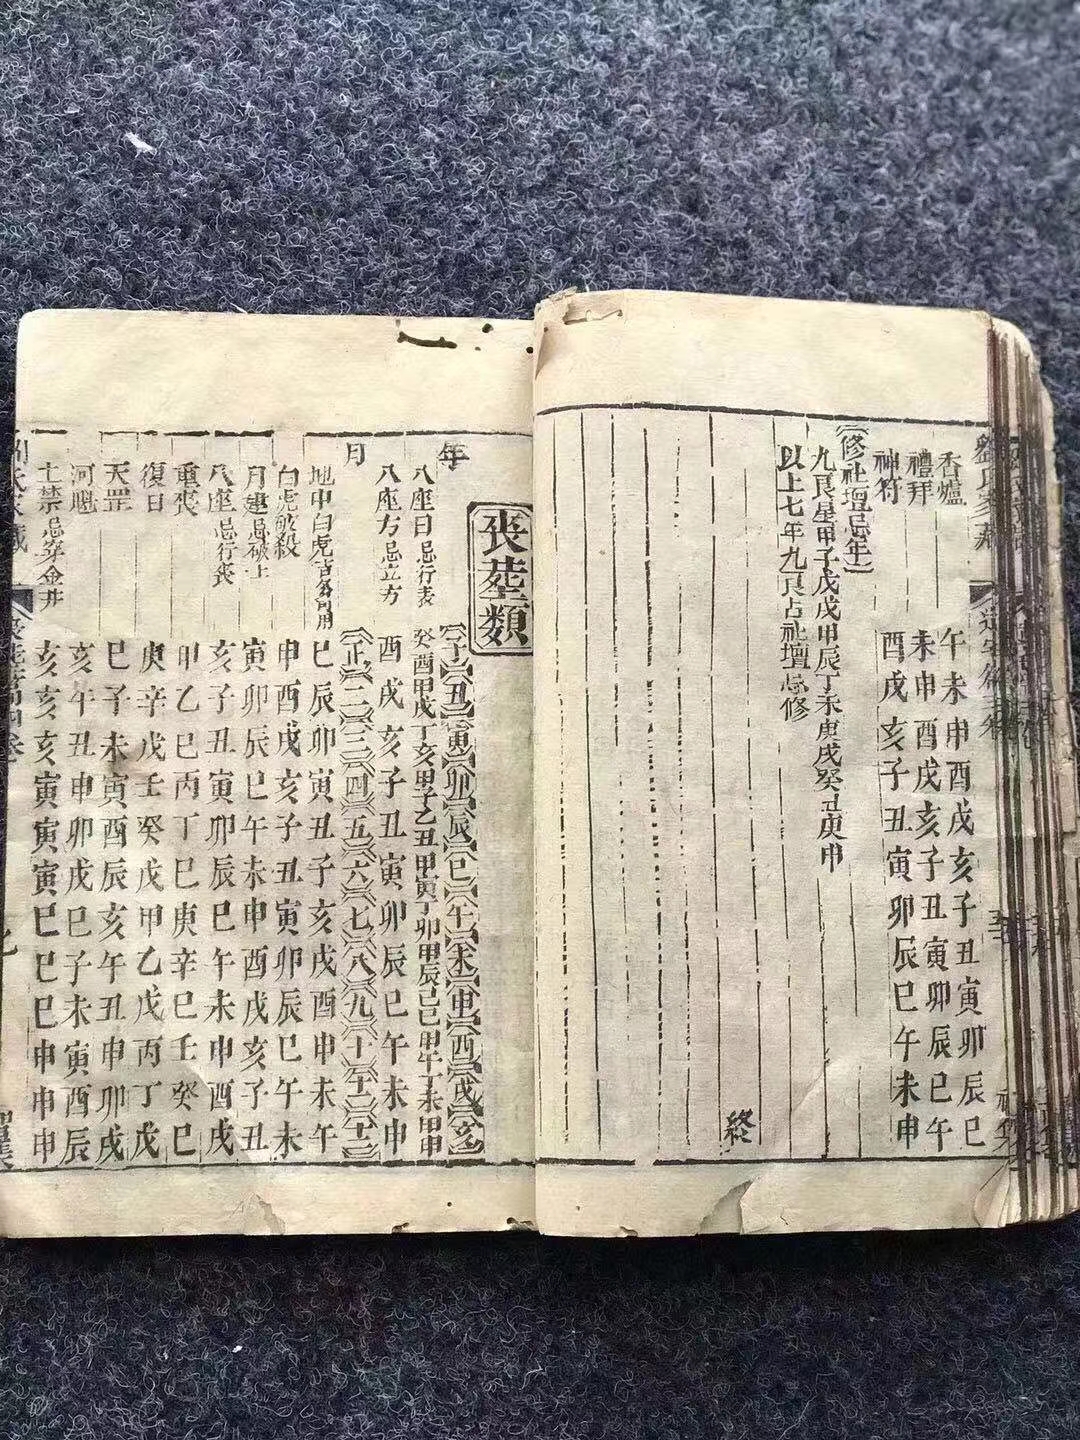 香爐 午未申酉戌亥子丑寅卯辰巳
禮拜 未申酉戌亥子丑寅卯辰巳午
神符 酉戌亥子丑寅卯辰巳午未申
修社壇忌年
九良星甲子戊戌甲辰丁未庚戌癸丑庚申
以上七年九良占社壇忌修
終
喪塟類
年 子 丑 寅 卯 辰 巳 午 未 申 酉 戌 亥
八座日忌行喪 癸酉甲戌丁亥甲子乙丑甲寅丁卯甲辰己巳甲午丁未甲申
八座方忌立方 酉戌亥子丑寅卯辰巳午未申
月 正 二 三 四 五 六 七 八 九 十 十一 十二
地中白虎 巳辰卯寅丑子亥戌酉申未午
白虎破殺 申酉戌亥子丑寅卯辰巳午未
月建忌破土 寅卯辰巳午未申酉戌亥子丑
八座忌行喪 亥子丑寅卯辰巳午未申酉戌
重喪 甲乙巳丙丁巳庚辛巳壬癸巳
復日 庚辛戊壬癸戊甲乙戊丙丁戊
天罡 巳子未寅酉辰亥午丑申卯戌
河魁 亥午丑申卯戌巳子未寅酉辰
土禁忌穿金井 亥亥亥寅寅寅巳巳巳申申申